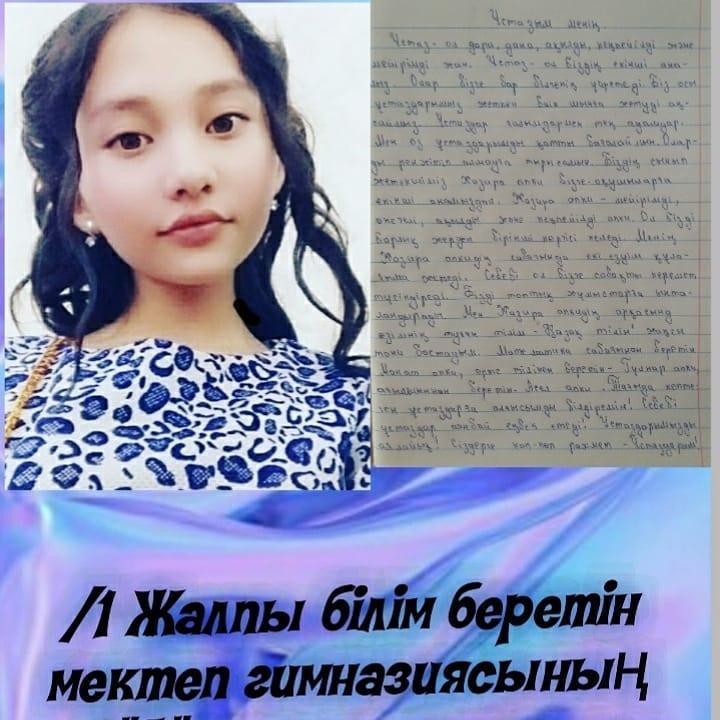 Ұстазым менің.
Ұстаз - ол дара, дана, ақылды, кеңпейілді және
мейірімді жан. Ұстаз - ол біздің екінші ана-
мыз. Олар бізге бар білгенін үйретеді. Біз осы
ұстаздарымыз жеткен биік шыңға жетуді
Ұстаздар ғалымдармен тең адамдар.
Мен өз ұстаздарымды қатты бағалаймын. Олар-
ды ренжітіп алмауға тырысамын. Біздің сынып
жетекшіміз Жазира апки бізге - оқушыларға
екінші анамыздай. Жазира апки - мейірімді,
өнегелі, ақылды және кеңпейілді апки. Ол бізді
барлық жерден бірінші көргісі келеді. Менің
Жазира апкидің сабағында екі езуім құла-
ғыма жетеді. Себебі ол бізге сабақты керемет
түсіндіреді. Бізді топтық жұмыстарға ынта-
ландырады. Мен Жазира апкидің арқасында
өзімнің туған тілім - Қазақ тілін жақсы
тани бастадым. Математика сабағынан беретін
Манат апки, орыс тілінен беретін - Гулнар апки,
ағылшыннан беретін - Асел апки. Тағыда көпте-
ген ұстаздарға алғысымды білдіремін! Себебі
ұстаздар аянбай еңбек етеді! Ұстаздарымызды
ардақтайық! Сіздерге көп-көп рахмет - Ұстаздарым!
/1 Жалпы білім беретін
мектеп гимназиясының